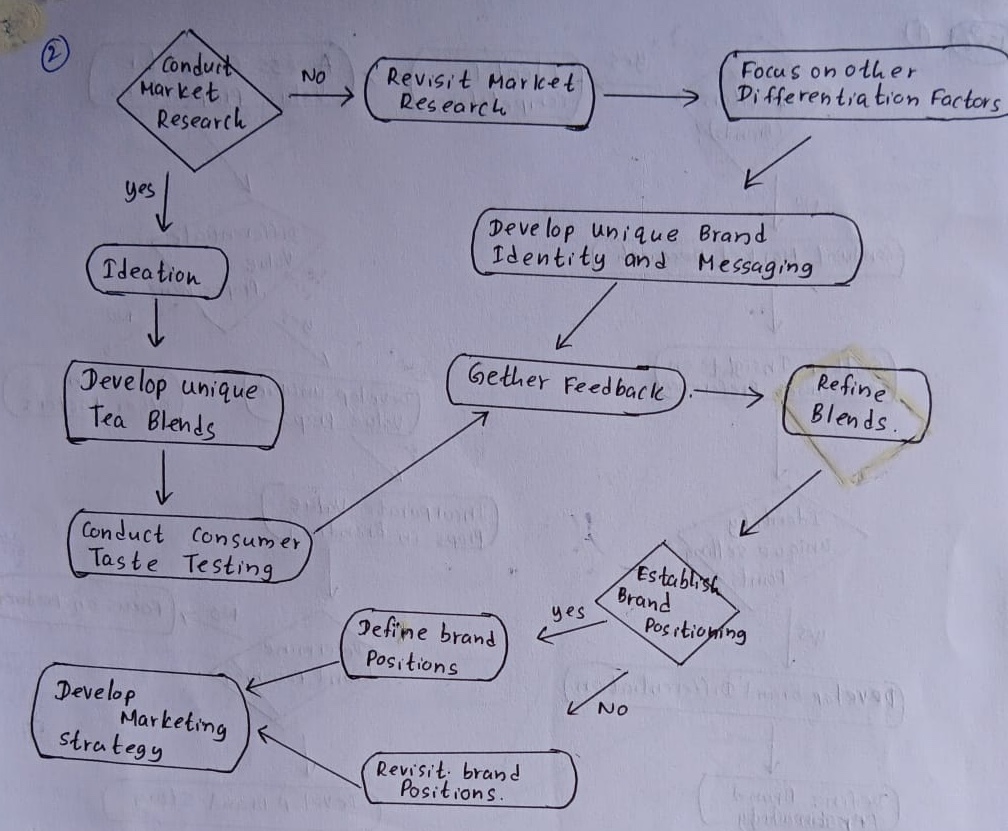 2
Conduct
Market
Research
NO
Revisit Market
Research
Focus on other
Differentiation Factors
yes
Ideation
Develop unique Brand
Identity and Messaging
Develop unique
Tea Blends
Gether Feedback.
Refine
Blends.
Conduct Consumer
Taste Testing
Establish
Brand
Positioning
yes
Define brand
Positions
NO
Develop
Marketing
strategy
Revisit. brand
Positions.